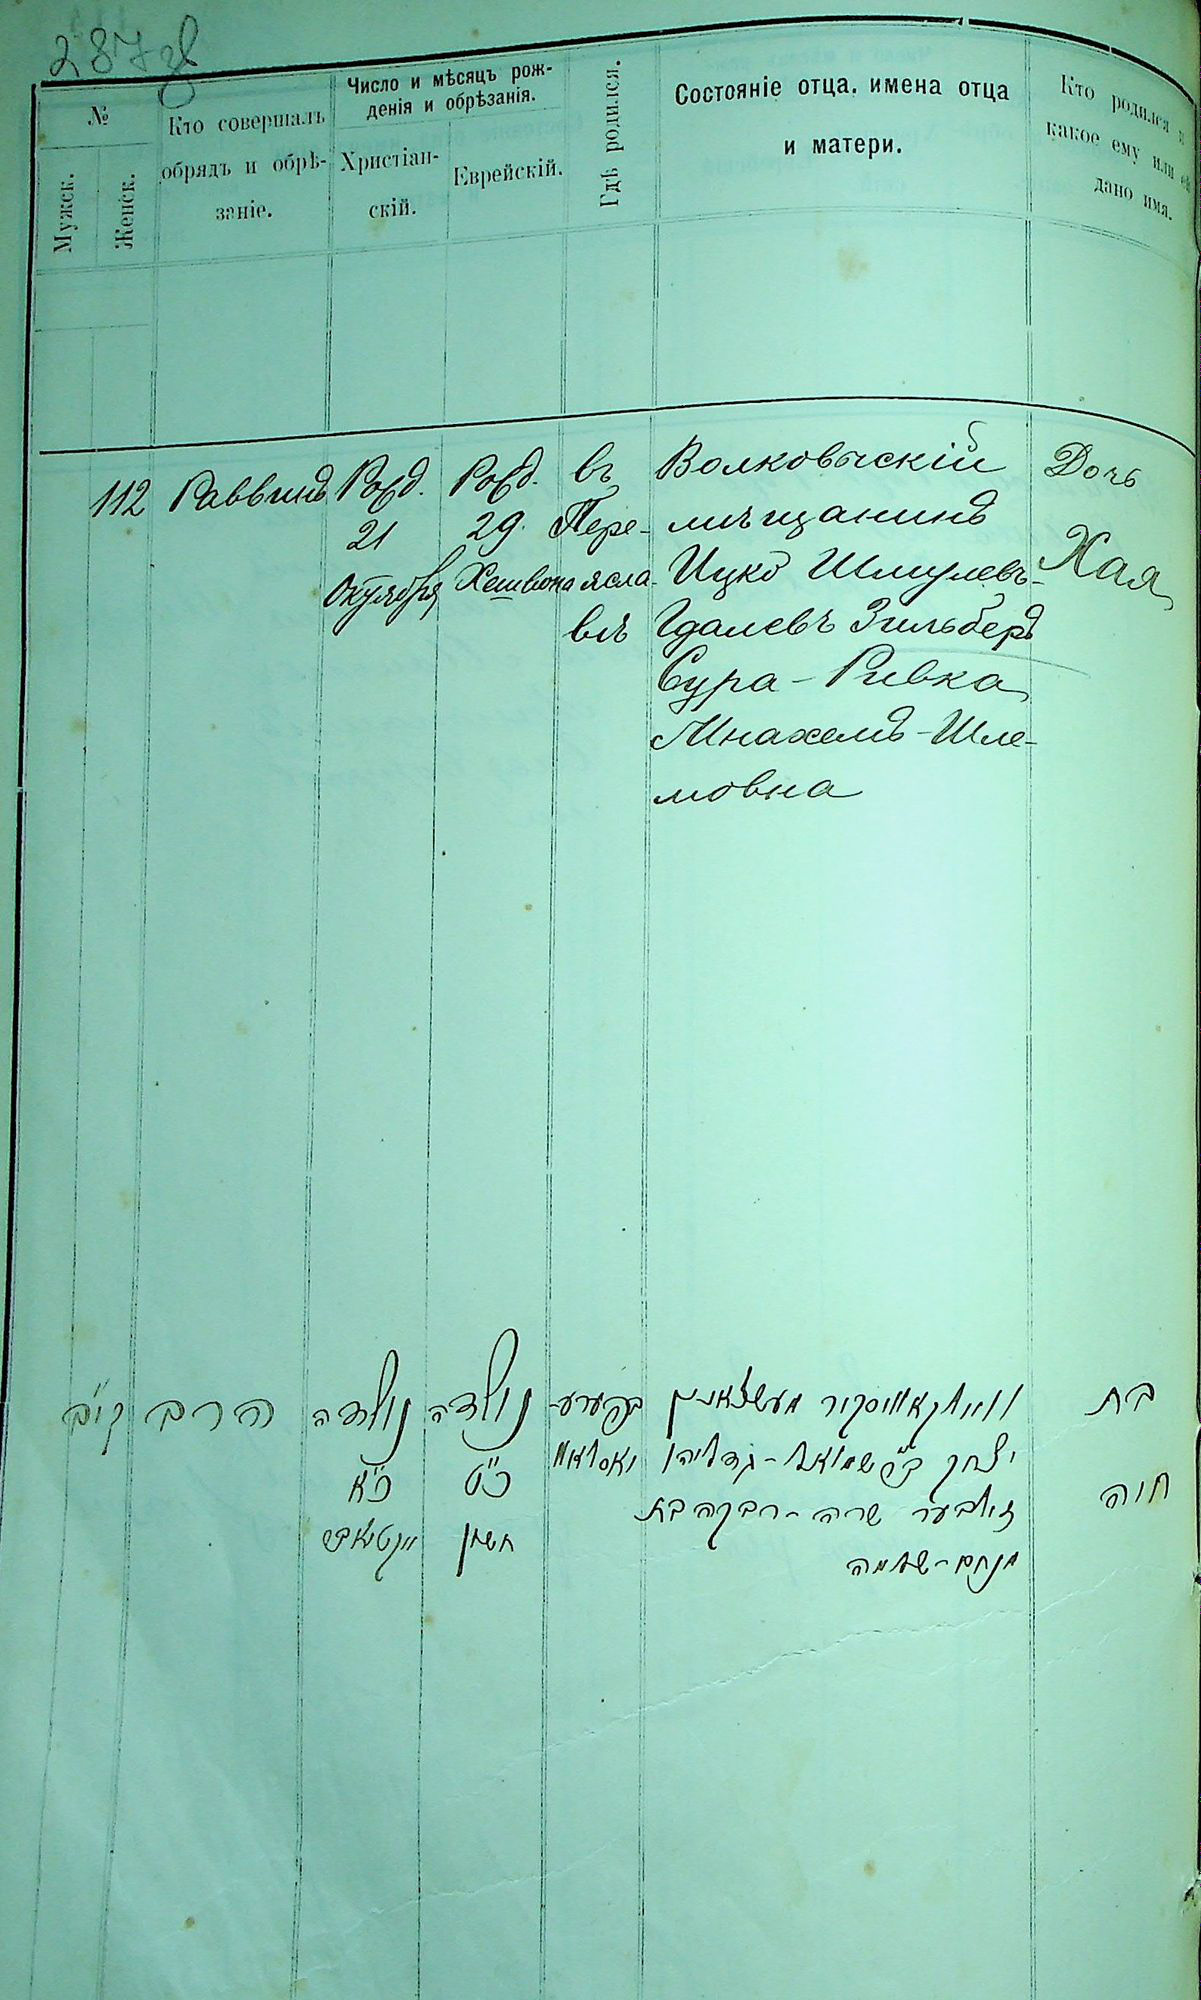 287 об
№
Мужск.
Женск.
Кто совершалъ
обрядъ и обрѣ-
заніе.
Число и мѣсяцъ рож-
денія и обрѣзанія.
Христіан-
скій.
Еврейскій.
Гдѣ родился.
Состояніе отца, имена отца
и матери.
Кто родился и
какое ему или ей
дано имя.
112
Раввинъ
Рожд.
21
Октября
Рожд.
29
Хешвона
въ
Пере-
ясла-
влѣ
Волковыскій
мѣщанинъ
Ицко Шмулевъ-
Гдалевъ Зильберъ
Сура-Ривка
Мнахемъ-Шле-
мовна
Дочь
Хая
קי״ב
הרב
נולדה
כ״א
נולדה
כ״ט
חשון
בפערע-
יאסלאוו
וואולקאוויסקיר מעשצאנין
יצחק ב״ר שמואל-גדליהו
זילבער שרה-רבקה בת
מנחם-שלמה
בת
חיה